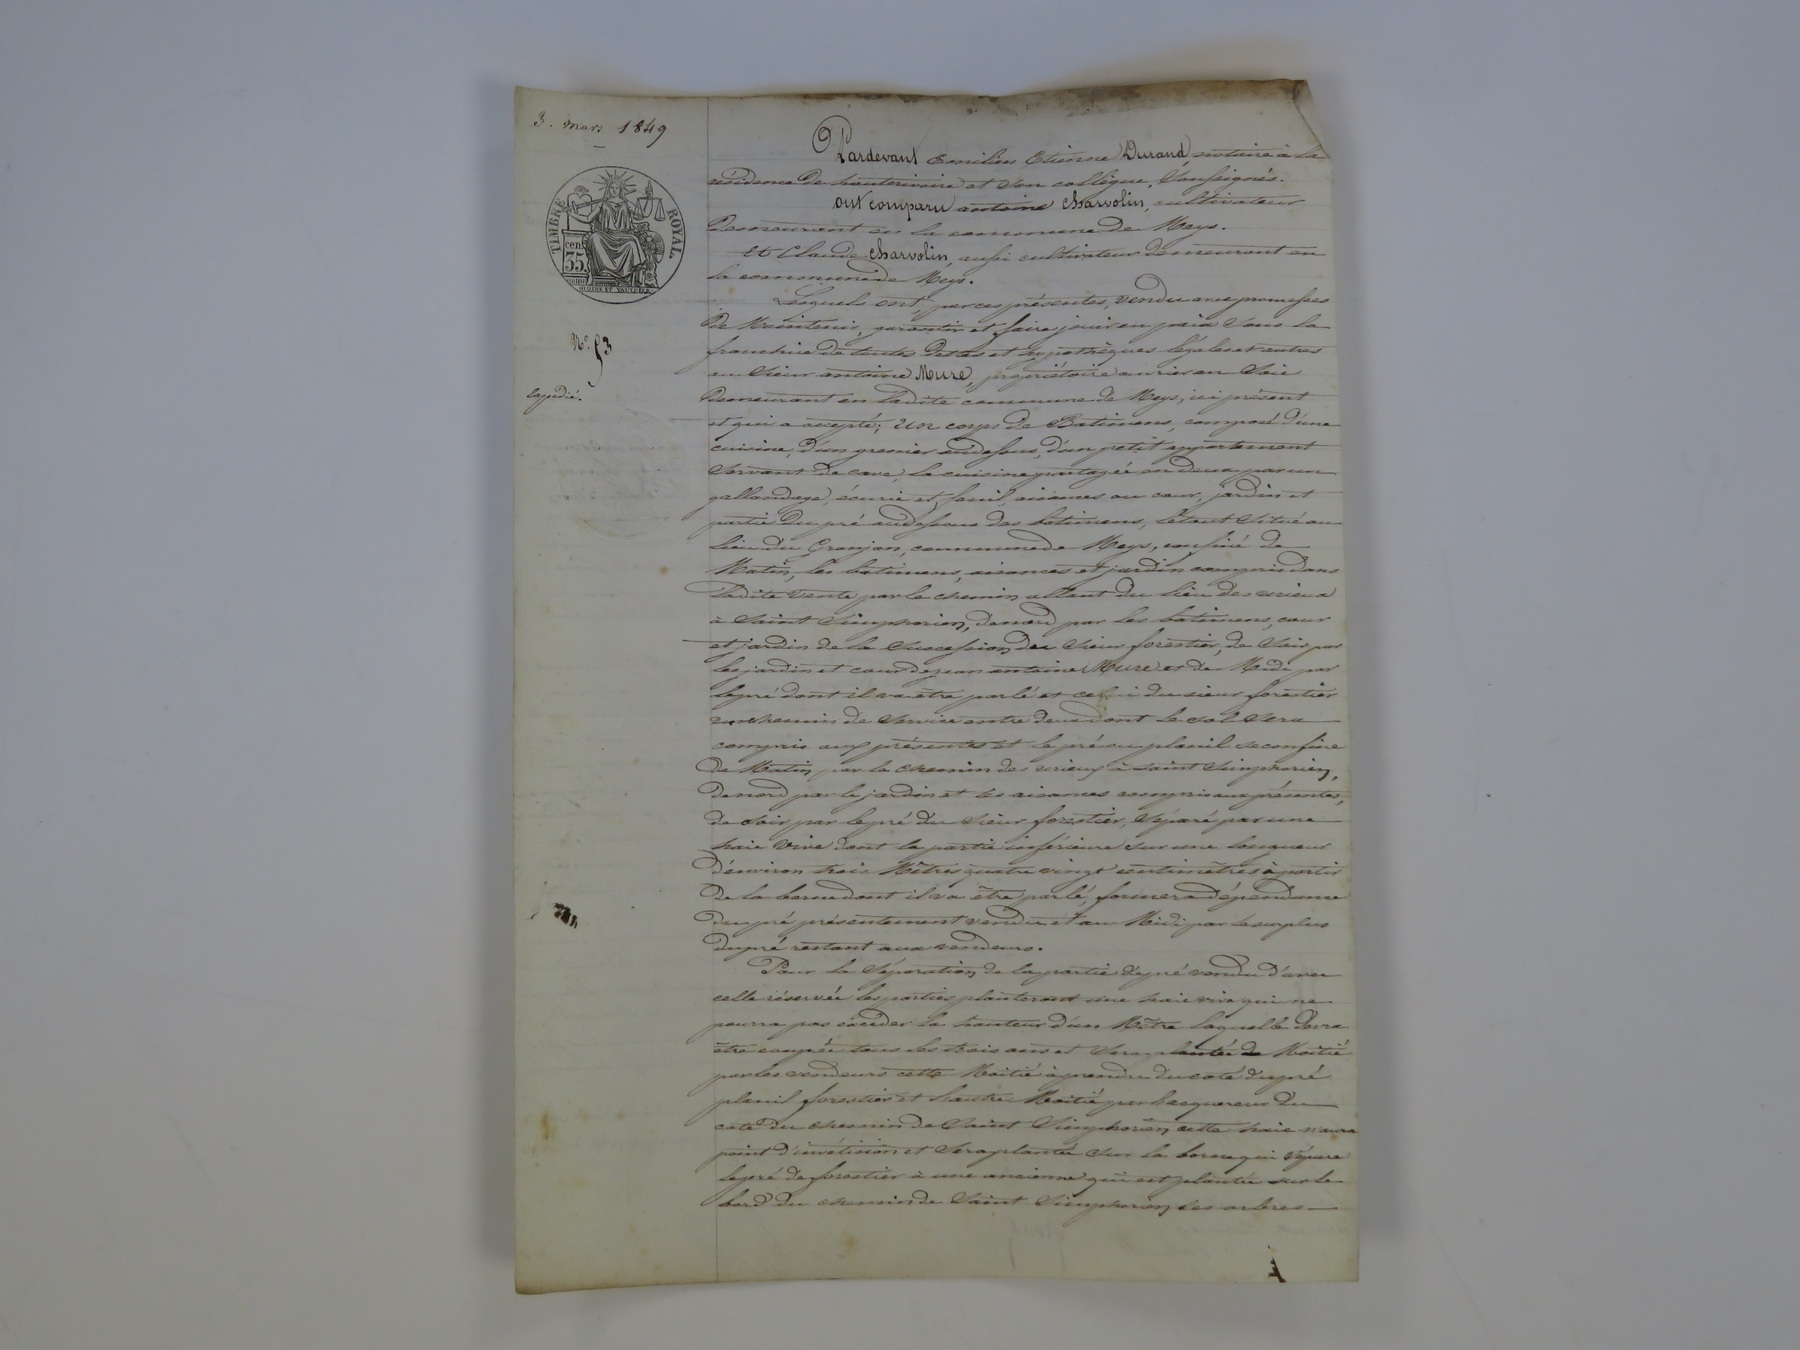 3. mars 1849
TIMBRE ROYAL
cen
35
N° 53
Expédié.
Pardevant Emilien Etienne Durand, notaire à la
résidence de hauterivoire et son collègue, Soussignés.
ont comparu antoine Charvolin, cultivateur
Demeurant en la commune de Meys.
Et Claude Charvolin, aussi cultivateur demeurant en
la commune de Meys.
Lesquels ont, par ces présentes, vendu avec promesses
De Maintenir, garantir et faire jouir en paix sous la
franchise de toutes Dettes et hypothèques légales et autres
au Sieur antoine Mure, propriétaire ouvrier en Soie
Demeurant en Ladite commune de Meys, ici présent
et qui a accepté; un corps de Batimens, composé d'une
cuisine, d'un grenier audessus, d'un petit appartement
Servant de cave, la cuisine partagée en deux par un
gallandage, écurie et fenil, aisances ou cour, jardin et
partie du pré audessous des batimens, le tout Situé au
lieu du Granjon, commune de Meys, confiné de
Matin, les batimens, aisances et jardin compris dans
Ladite Vente par le chemin allant du lieu des
à Saint Simphorien, de nord par les batimens, cour
et jardin de la Succession du Sieur forestier, de Soir par
les jardin et cour de jean antoine Mure et de Midi par
le pré dont il va être parlé et celui du sieur forestier
un chemin de Service entre deux dont le sol Sera
compris aux présentes et le pré ou planil se confine
De Matin par le chemin des à Saint Simphorien,
De nord par le jardin et les aisances compris aux présentes,
de Soir par le pré du Sieur forestier, Séparé par une
haie Vive dont la partie inférieure sur une longueur
D'environ trois Mètres quatre vingt centimètres à partir
De la borne dont il va être parlé, formera dépendance
Du pré présentement vendu et au Midi par le surplus
du pré restant aux vendeurs.
Pour la Séparation de la partie de pré vendu d'avec
celle réservée les parties planteront une haie vive qui ne
pourra pas excéder la hauteur d'un Mètre laquelle devra
être coupée tous les trois ans et Sera plantée de Moitié
par les vendeurs cette Moitié à prendre du coté du pré
planil forestier et l'autre Moitié par l'acquereur Du
coté du chemin de Saint Simphorien cette haie n'aura
point d' et Sera plantée Sur la borne qui Sépare
le pré de forestier à une ancienne qui est plantée sur le
bord du chemin de Saint Simphorien les arbres